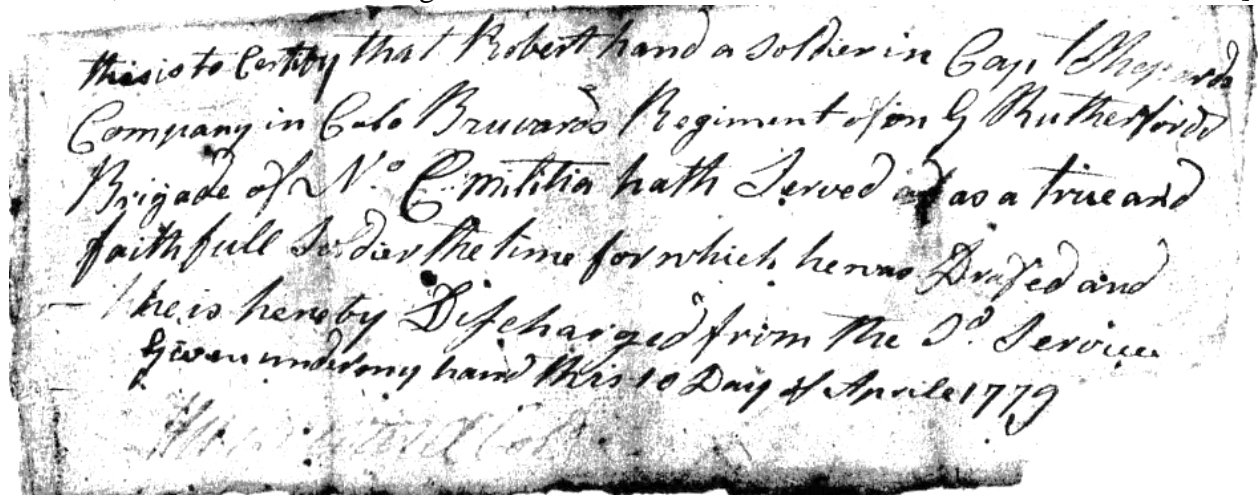 this is to Certify that Robert hand a Soldier in Capt Shepards
Company in Colo Bruvards Regiment of on G Rutherfords
Brigade of No C militia hath Served as a true and
faithfull Soldier the time for which he was Drafed and
he is hereby Discharged from the Sd. Service
Given under my hand this 10 Day of Aprile 1779